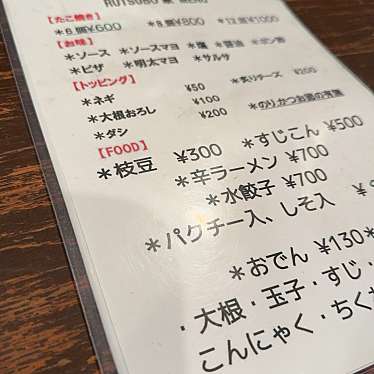 MENU
【たこ焼き】
＊6個¥600 ＊8個¥800 ＊12個¥1000
【お味】
＊ソース ＊ソースマヨ ＊塩 ＊醤油 ＊ポン酢
＊ピザ ＊明太マヨ ＊サルサ
【トッピング】
＊ネギ ¥50 ＊炙りチーズ ¥200
＊大根おろし ¥100 ＊のりかつお
＊ダシ ¥200
【FOOD】
＊枝豆 ¥300 ＊すじこん ¥500
＊辛ラーメン ¥700
＊水餃子 ¥700
＊パクチー入、しそ入 ¥
＊おでん ¥130＊
・大根・玉子・すじ・
こんにゃく・ちく